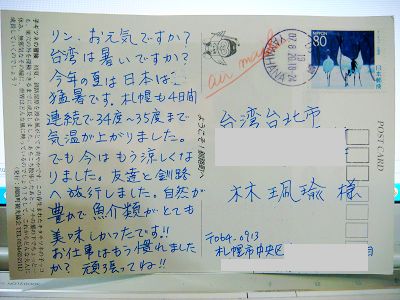 リン、お元気ですか?
台湾は暑いですか?
今年の夏は日本は、
猛暑です。札幌も4日間
連続で34度~35度まで
気温が上がりました。
でも今はもう涼しくな
りました。友達と釧路
へ旅行しました。自然が
豊かで魚介類がとても
美味しかったです!!
お仕事はもう慣れました
か? 頑張ってね!!
air mail
ようこそ!釧路町へ
POST CARD
NIPPON
80
日本郵便
台湾台北市
林珮瑜 様
〒064-0913
札幌市中央区